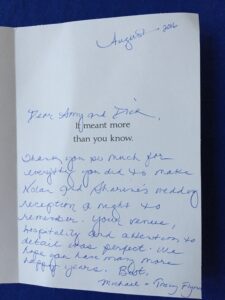 August 2016
Dear Amy and Dick,
It meant more
than you know.
Thank you so much for
everything you did to make
Nolan and Sharine's wedding
reception a night to
remember. Your venue,
hospitality and attention to
detail was perfect. We
hope you have many more
happy years. Best,
Michael + Tracy Flynn